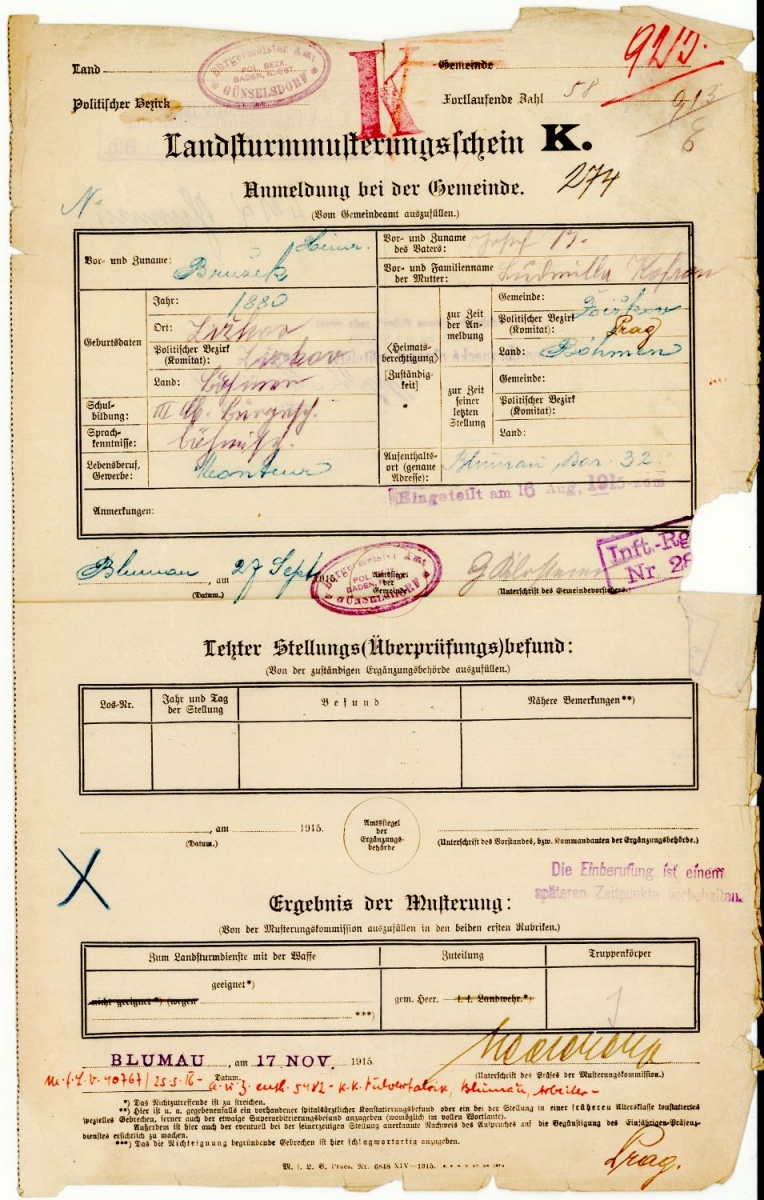 Land
Bürgermeister Amt
POL. BEZK.
BADEN, N.-ÖST.
GÜNSELSDORF
K
Gemeinde
925.
Politischer Bezirk
Fortlaufende Zahl 58
913
Landsturmmusterungsschein K.
Anmeldung bei der Gemeinde. 274
(Vom Gemeindeamt auszufüllen.)
Vor- und Zuname:
Heinr.
Brušek
Geburtsdaten
Jahr: 1880
Ort: Žižkov
Politischer Bezirk
(Komitat): Žižkov
Land: Böhmen
Schul-
bildung: III
Sprach-
kenntnisse: böhmisch.
Lebensberuf,
Gewerbe: Monteur
Vor- und Zuname
des Vaters: Josef B.
Vor- und Familienname
der Mutter: Ludmilla
(Heimats-
berechtigung)
(Zuständig-
keit)
zur Zeit
der An-
meldung
Gemeinde: Žižkov
Politischer Bezirk
(Komitat): Prag
Land: Böhmen
zur Zeit
seiner
letzten
Stellung
Gemeinde:
Politischer Bezirk
(Komitat):
Land:
Aufenthalts-
ort (genaue
Adresse): Blumau Bar. 32.
Eingeteilt am 16 Aug. 1915 zum
Anmerkungen:
Inft.-Rg
Nr. 28
Blumau, am 27 Sept 1915.
(Datum.)
Bürgermeister Amt
POL. BEZK.
BADEN, N.-ÖST.
GÜNSELSDORF
Amtssiegel
der
Gemeinde
(Unterschrift des Gemeindevorstehers.)
Letzter Stellungs(Überprüfungs)befund:
(Von der zuständigen Ergänzungsbehörde auszufüllen.)
Los-Nr.
Jahr und Tag
der Stellung
Befund
Nähere Bemerkungen**)
, am 1915.
(Datum.)
Amtssiegel
der
Ergänzungs-
behörde
(Unterschrift des Vorstandes, bzw. Kommandanten der Ergänzungsbehörde.)
Die Einberufung ist einem
späteren Zeitpunkte vorbehalten.
Ergebnis der Musterung:
(Von der Musterungskommission auszufüllen in den beiden ersten Rubriken.)
Zum Landsturmdienste mit der Waffe
Zuteilung
Truppenkörper
geeignet*)
nicht geeignet*) (wegen
***)
gem. Heer. k. k. Landwehr.*)
BLUMAU, am 17 NOV. 1915
Datum.
(Unterschrift des Präses der Musterungskommission.)
M.f.L.V. 40767/25.5.16 - a.u.z. enth. 5482 - K.K. Pulverfabrik, Blumau, Arbeiter -
*) Das Nichtzutreffende ist zu streichen.
**) Hier ist u. a. gegebenenfalls ein vorhandener spitalsärztlicher Konstatierungsbefund oder ein bei der Stellung in einer früheren Altersklasse konstatiertes
spezielles Gebrechen, ferner auch der etwaige Superarbitrierungsbefund anzugeben (womöglich im vollen Wortlaute).
Außerdem ist hier auch der eventuell bei der seinerzeitigen Stellung anerkannte Nachweis des Anspruches auf die Begünstigung des Einjährigen-Präsenz-
dienstes ersichtlich zu machen.
***) Das die Nichteignung begründende Gebrechen ist hier schlagwortartig anzugeben.
Prag.
M. f. L. V. Praes. Nr. 6848 XIV—1915.